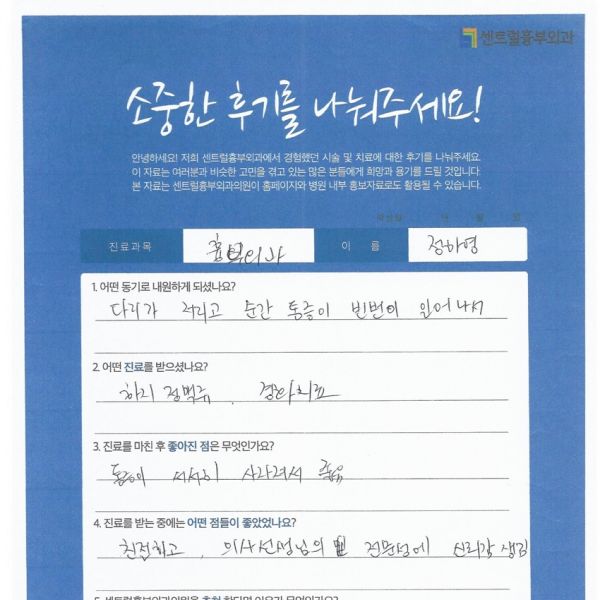 센트럴흉부외과
소중한 후기를 나눠주세요!
안녕하세요! 저희 센트럴흉부외과에서 경험했던 시술 및 치료에 대한 후기를 나눠주세요.
이 자료는 여러분과 비슷한 고민을 겪고 있는 많은 분들에게 희망과 용기를 드릴 것입니다.
본 자료는 센트럴흉부외과의원이 홈페이지와 병원 내부 홍보자료로도 활용될 수 있습니다.
작성일 년 월 일
진료과목 흉부외과 이 름 정하영
1. 어떤 동기로 내원하게 되셨나요?
다리가 저리고 순간 통증이 빈번히 일어나서
2. 어떤 진료를 받으셨나요?
하지 정맥류, 경화치료
3. 진료를 마친 후 좋아진 점은 무엇인가요?
통증이 서서히 사라져서 좋음
4. 진료를 받는 중에는 어떤 점들이 좋았었나요?
친절하고, 의사선생님의 전문성에 신뢰감 생김
5. 센트럴흉부외과의원을 추천 한다면 이유가 무엇인가요?